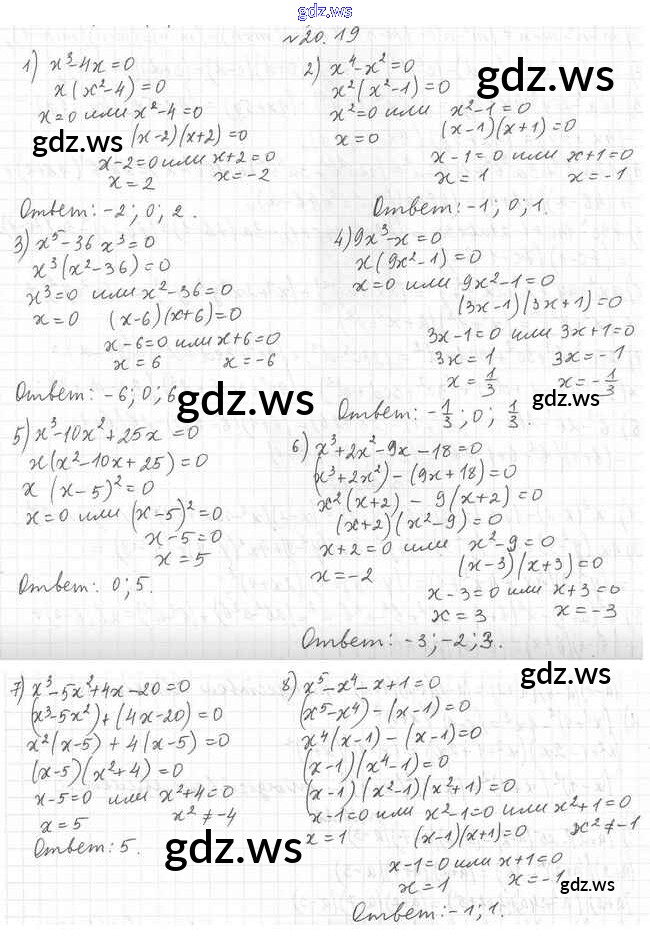 gdz.ws
№20.19
1) x³-4x=0
x(x²-4)=0
x=0 или x²-4=0
(x-2)(x+2)=0
x-2=0 или x+2=0
x=2 x=-2
Ответ: -2; 0; 2.
2) x⁴-x²=0
x²(x²-1)=0
x²=0 или x²-1=0
x=0 (x-1)(x+1)=0
x-1=0 или x+1=0
x=1 x=-1
Ответ: -1; 0; 1.
gdz.ws
gdz.ws
3) x⁵-36x³=0
x³(x²-36)=0
x³=0 или x²-36=0
x=0 (x-6)(x+6)=0
x-6=0 или x+6=0
x=6 x=-6
Ответ: -6; 0; 6
4) 9x³-x=0
x(9x²-1)=0
x=0 или 9x²-1=0
(3x-1)(3x+1)=0
3x-1=0 или 3x+1=0
3x=1 3x=-1
x=1/3 x=-1/3
Ответ: -1/3; 0; 1/3.
gdz.ws
gdz.ws
5) x³-10x²+25x=0
x(x²-10x+25)=0
x(x-5)²=0
x=0 или (x-5)²=0
x-5=0
x=5
Ответ: 0; 5.
6) x³+2x²-9x-18=0
(x³+2x²)-(9x+18)=0
x²(x+2)-9(x+2)=0
(x+2)(x²-9)=0
x+2=0 или x²-9=0
x=-2 (x-3)(x+3)=0
x-3=0 или x+3=0
x=3 x=-3
Ответ: -3; -2; 3.
gdz.ws
7) x³-5x²+4x-20=0
(x³-5x²)+(4x-20)=0
x²(x-5)+4(x-5)=0
(x-5)(x²+4)=0
x-5=0 или x²+4=0
x=5 x²≠-4
Ответ: 5.
8) x⁵-x⁴-x+1=0
(x⁵-x⁴)-(x-1)=0
x⁴(x-1)-(x-1)=0
(x-1)(x⁴-1)=0
(x-1)(x²-1)(x²+1)=0
x-1=0 или x²-1=0 или x²+1=0
x=1 (x-1)(x+1)=0 x²≠-1
x-1=0 или x+1=0
x=1 x=-1
Ответ: -1; 1.
gdz.ws
gdz.ws